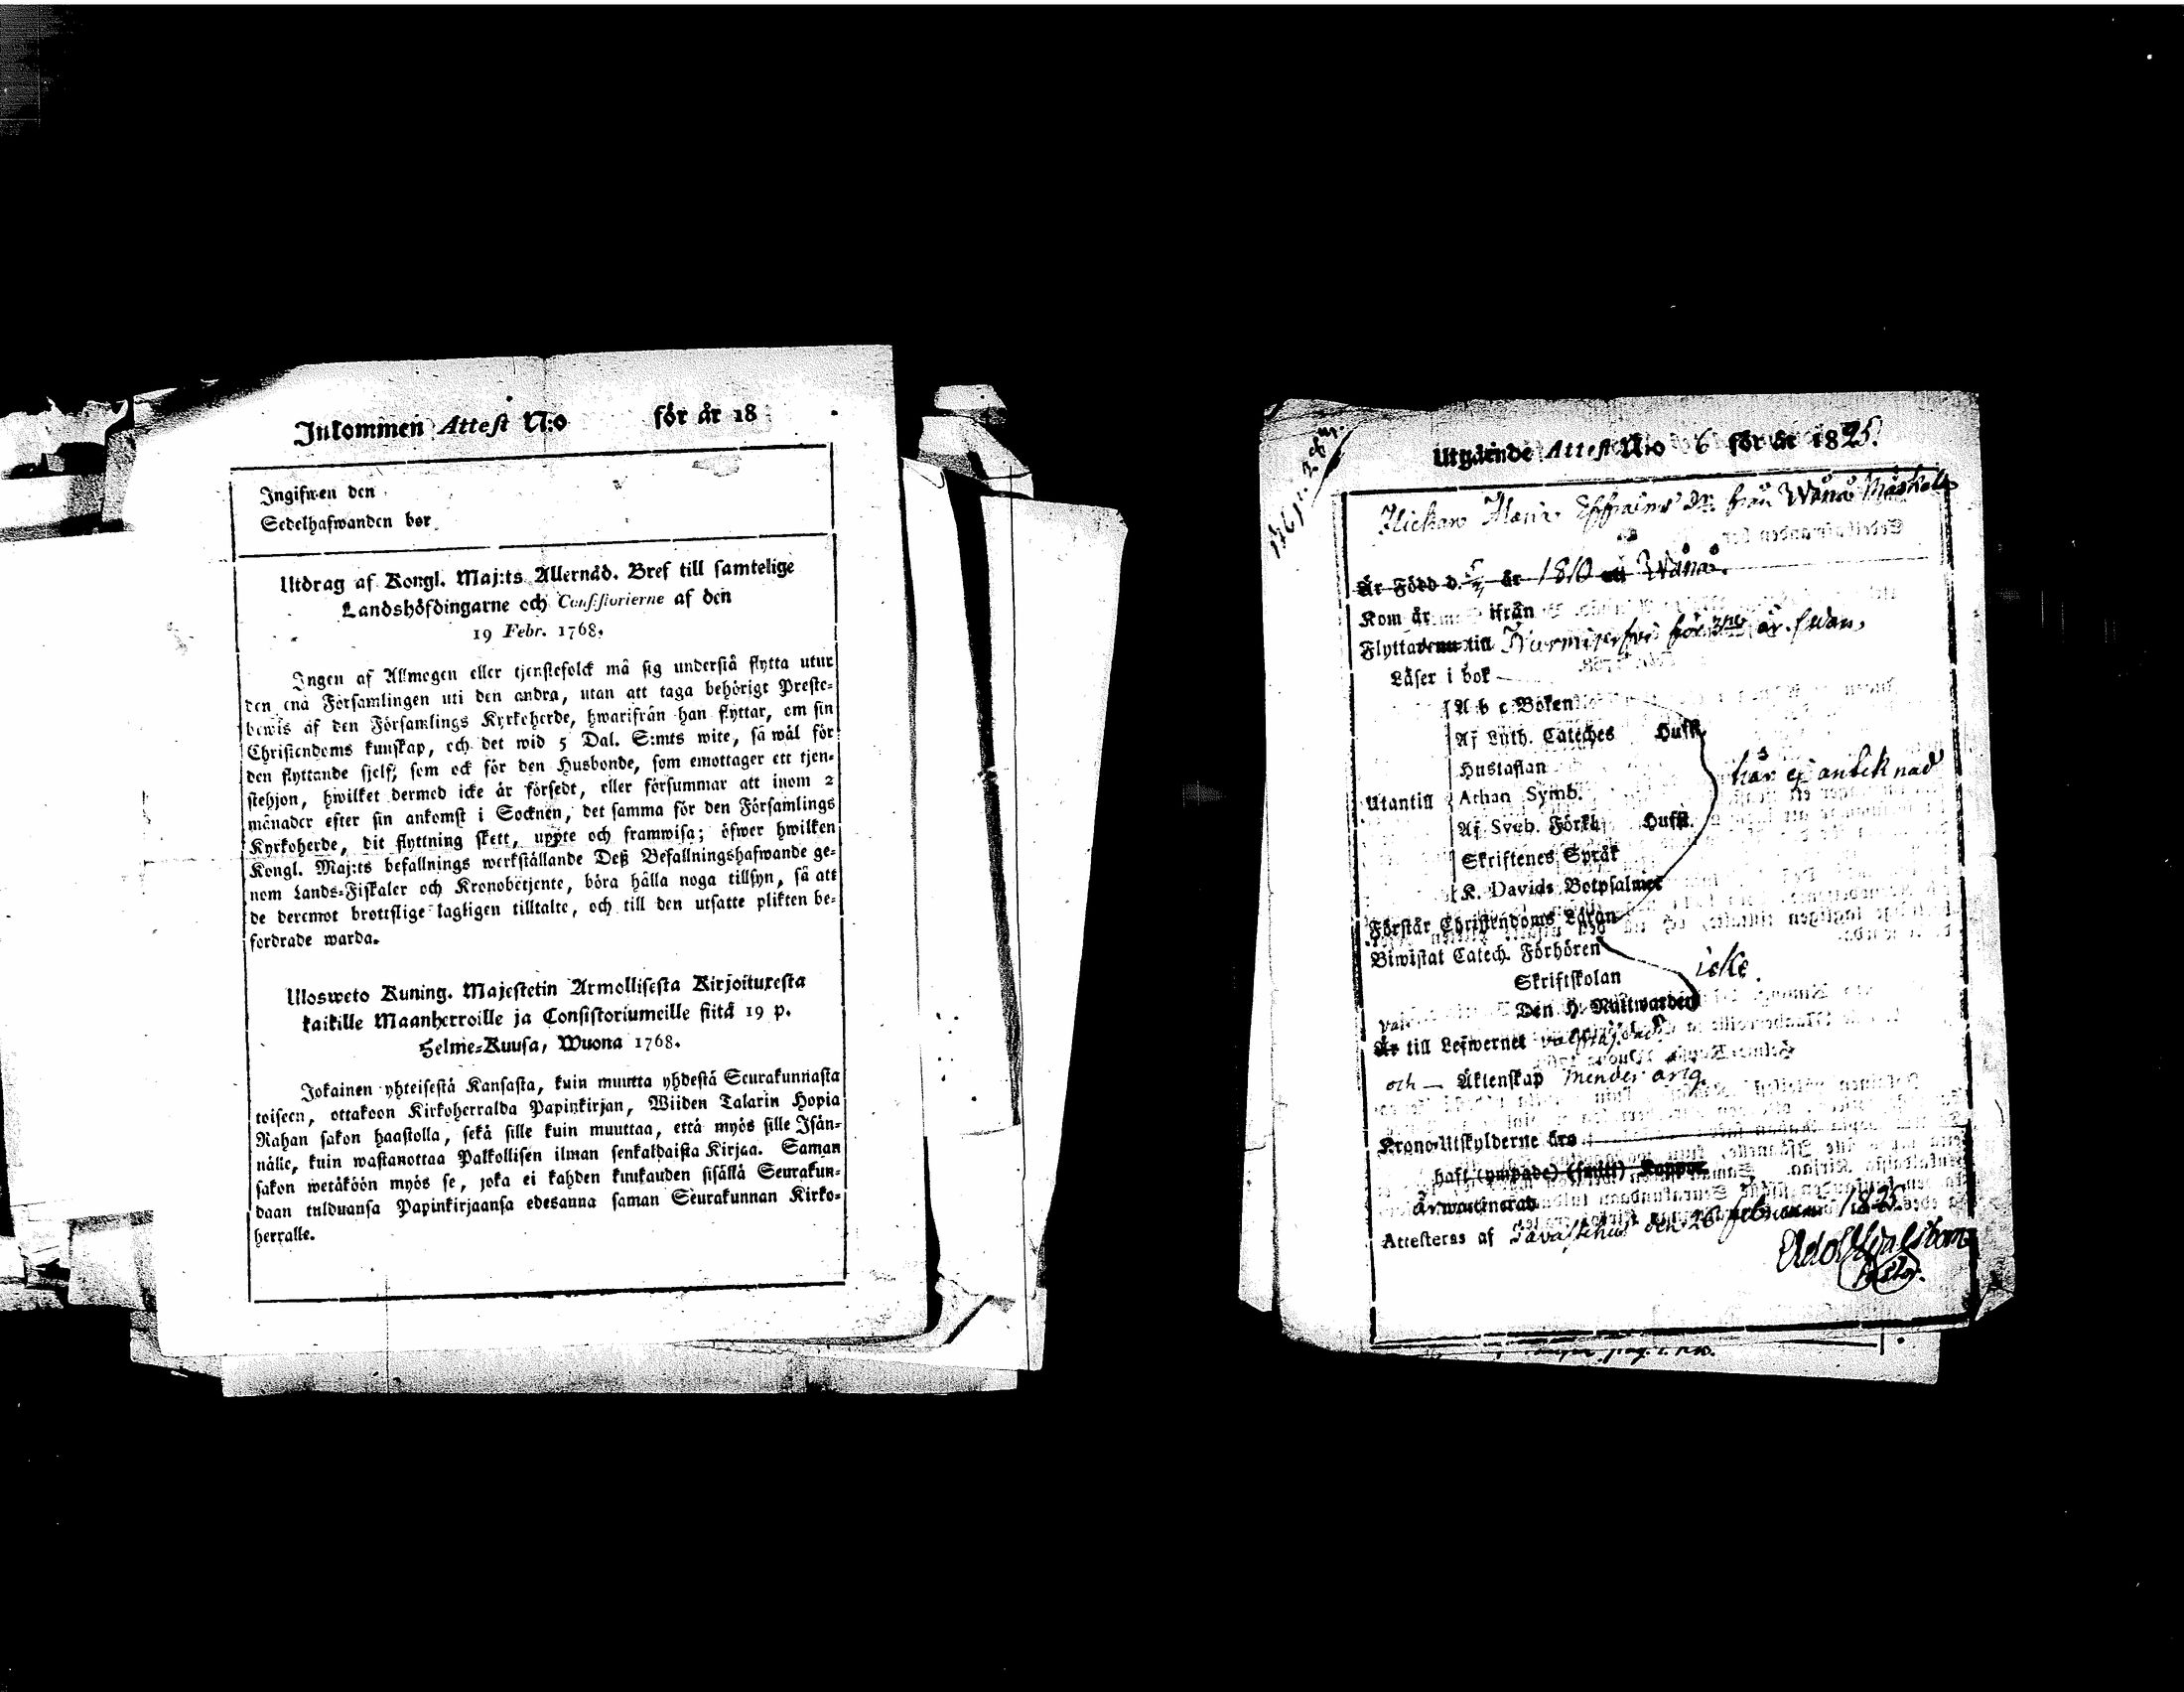 Inkommen Attest N:o för år 18
Ingifwen den
Sedelhafwanden bor
Utdrag af Kongl. Maj:ts Allernåd. Bref till samtelige
Landshöfdingarne och Consistorierne af den
19 Febr. 1768.
Ingen af Allmogen eller tjenstefolck må sig understå flytta utur
den ena Församlingen uti den andra, utan att taga behörigt Preste-
bewis af den Församlings Kyrkoherde, hwarifrån han flyttar, om sin
Christendoms kunskap, och det wid 5 Dal. S:mts wite, så wäl för
den flyttande sjelf, som ock för den Husbonde, som emottager ett tjen-
stehjon, hwilket dermed icke är försedt, eller försummar att inom 2
månader efter sin ankomst i Socknen, det samma för den Församlings
Kyrkoherde, dit flyttning skett, uppte och framwisa; öfwer hwilken
Kongl. Maj:ts befallnings werkställande Deß Befallningshafwande ge-
nom Lands-Fiskaler och Kronobetjente, böra hålla noga tillsyn, så att
de deremot brottslige lagligen tilltalte, och till den utsatte plikten be-
fordrade warda.
Ulosweto Kuning. Majestetin Armollisesta Kirjoituxesta
kaikille Maanherroille ja Consistoriumeille siitä 19 p.
Helme-Kuusa, Wuona 1768.
Jokainen yhteisestä Kansasta, kuin muutta yhdestä Seurakunnasta
toiseen, ottakoon Kirkoherralda Papinkirjan, Wiiden Talarin Hopia
Rahan sakon haastolla, sekä sille kuin muuttaa, että myös sille Isän-
nälle, kuin wastanottaa Palkollisen ilman senkaldaista Kirjaa. Saman
sakon wetäköön myös se, joka ei kahden kuukauden sisällä Seurakun-
daan tulduansa Papinkirjaansa edesanna saman Seurakunnan Kirko-
herralle.
Utgående Attest N:o 6 för år 1825.
Flickan Maria Ephraims Dr. från Wånå
Är Född d. år 1810 uti Wånå.
Kom år ifrån
Flyttade till Nurmijerfwi för år. swan,
Läser i bok
A b c Boken
Af Luth. Cateches Hufst.
Hustaflan
här ej anteknad
Utantill Athan Symb.
Af Sveb. Förkl. Hufst.
Skriftenes Språk
K. Davids Botpsalmer
Förstår Christendoms Läran
Biwistat Catech. Förhören
icke
Skriftskolan
Den H. Nattwarden
Är till Lefwernet
och Äktenskap
Krono-Utskylderne års
haft (ympade) (smitt) Koppor
Är waccinerad
Attesteras af Tavastehus den 26 februari 1825.
Pastor.